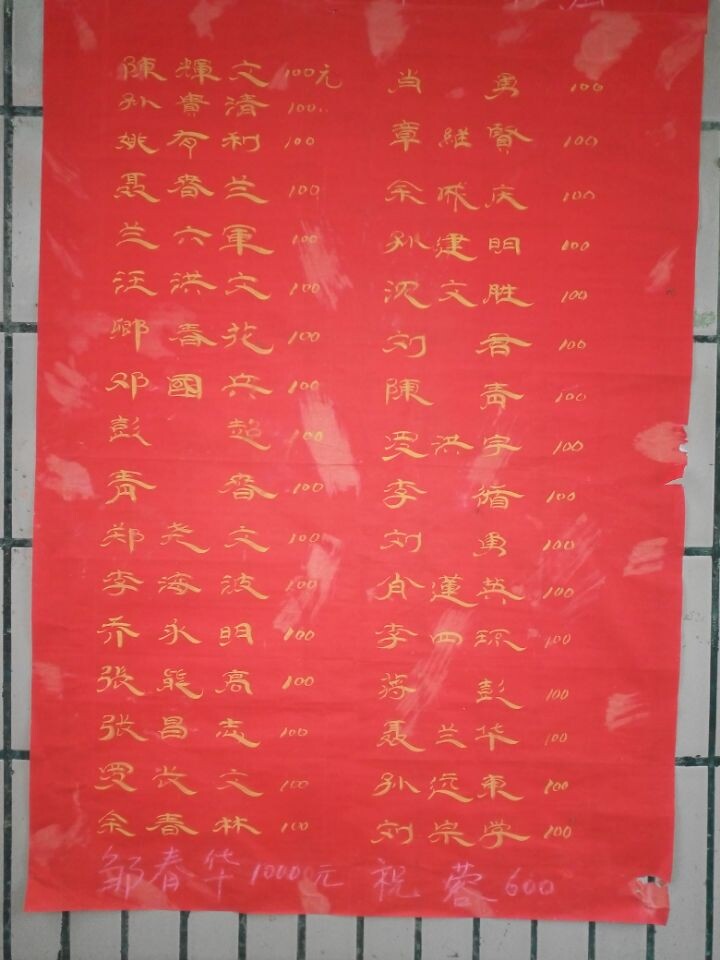 陳輝文 100元
孙貴清 100
姚有利 100
聂春兰 100
兰六軍 100
汪洪文 100
卿春花 100
邓國兵 100
彭超 100
青春 100
郑尧文 100
李海波 100
乔永明 100
張能高 100
张昌志 100
罗长文 100
余春林 100
邹春华 10000元
当勇 100
章継賢 100
余成庆 100
孙建明 100
沈文胜 100
刘君 100
陳青 100
罗洪宇 100
李循 100
刘勇 100
肖蓮英 100
李四琼 100
蒋彭 100
聂兰华 100
孙远東 100
刘宗学 100
祝蓉 600